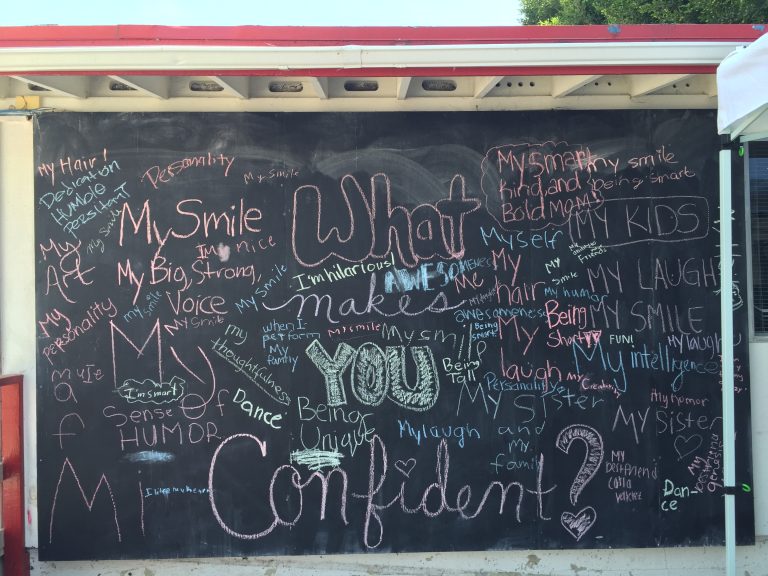 What
makes
YOU
Confident?
My Hair!
Dedication
HUMBlE
PERSITANT
My Smile
Personality
My Smile
My Smile
I'm nice
My
Art
My Big, Strong,
Voice
my smile
My Smile
My Smile
My
Personality
My
I'm smart
Sense of
HUMOR
my
thoughtfulness
DANCE
when I
perform
My
family
I'm hilarious!
AWESOMENESS
My smile
My smile
Being
tall
Being
Unique
My laugh
My smart
Kind, and
Bold Mom!
my smile
Being smart
MY KIDS
Myself
My
hair
My
Friends
My
Smile
My humor
awesomeness
Being
smart!
My
laugh
Being
Short
MY LAUGH
MY SMILE
FUN!
My intelligence
My laugh
Personality
My
Creativity
MY SISTER
and
my
family
My humor
MY SISTER
My
best friend
Dan-
ce